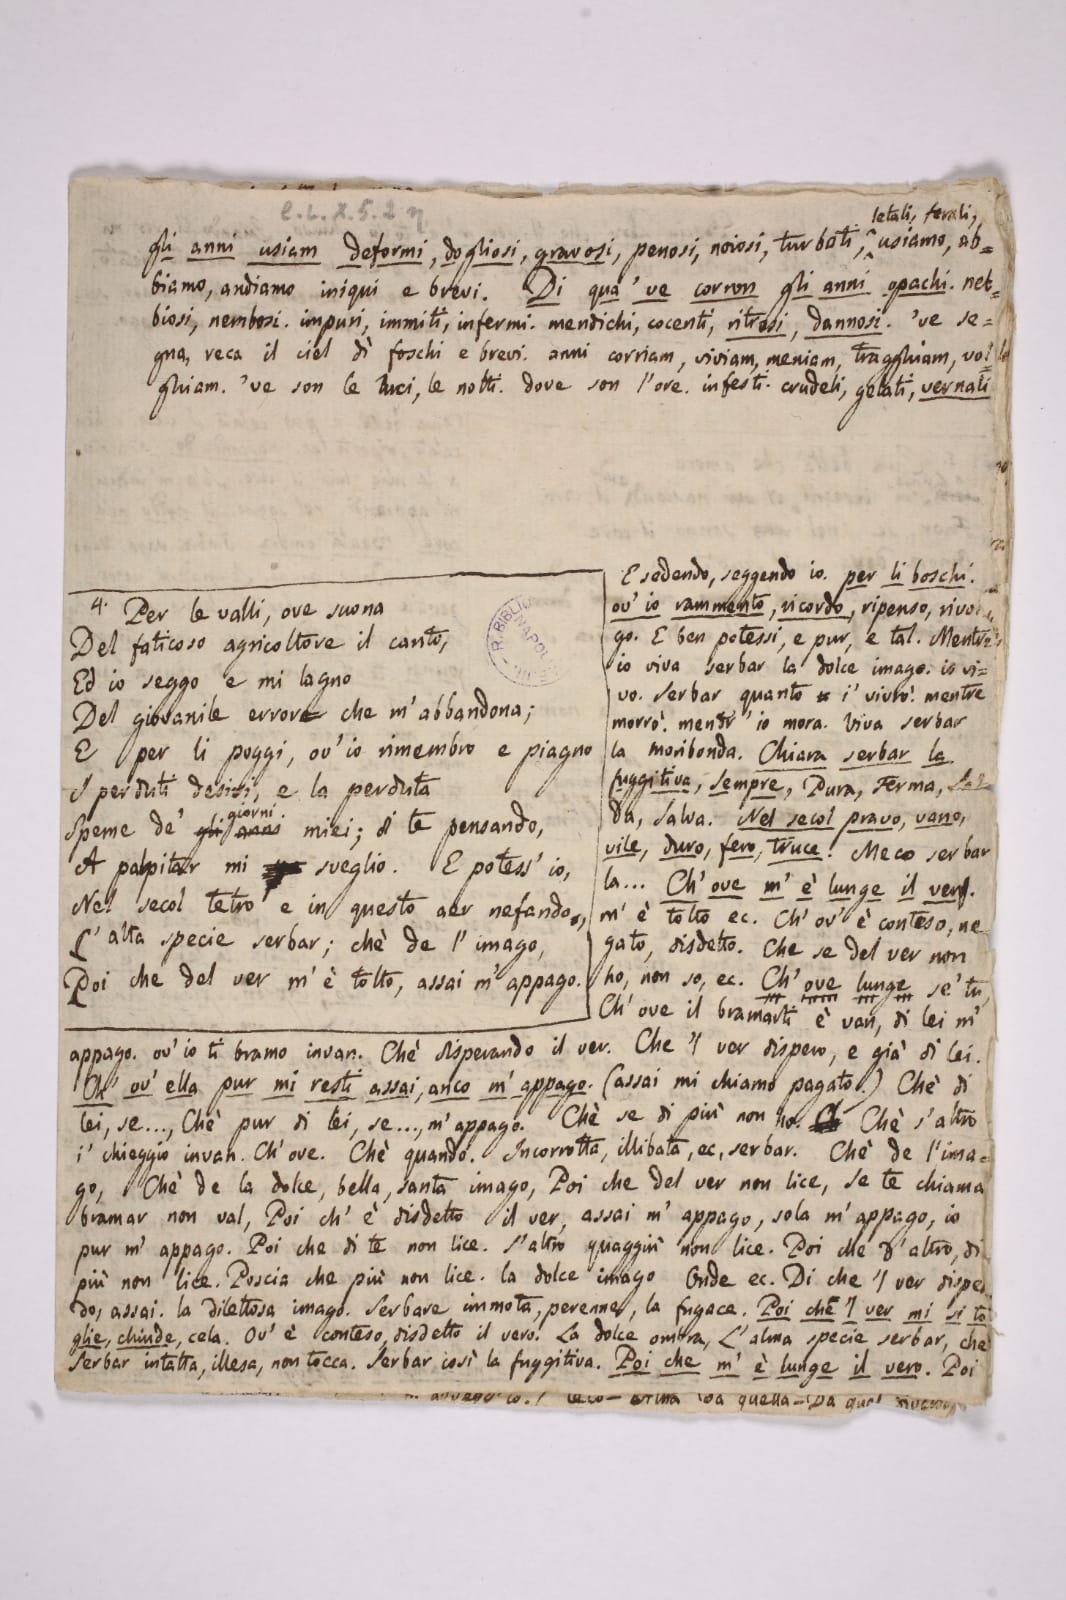 C.L.X.5.2 η
letali, ferali,
gli anni usiam deformi, dogliosi, gravosi, penosi, noiosi, turbati, ^ usiamo, ab=
biamo, andiamo iniqui e brevi. Di qua 've corron gli anni opachi. neb=
biosi, nembosi. impuri, immiti, infermi. mendichi, cocenti, ritrosi, dannosi. 've se=
gna, reca il ciel dì foschi e brevi. anni corriam, viviam, meniam, tragghiam, vol
ghiam. 've son le luci, le notti. dove son l'ore. infesti. crudeli, gelati, vernali
4. Per le valli, ove suona
Del faticoso agricoltore il canto,
Ed io seggo e mi lagno
Del giovanile error che m'abbandona;
E per li poggi, ov'io rimembro e piagno
I perduti desiri, e la perduta
giorni
Speme de' gli anni miei; di te pensando,
A palpitar mi sveglio. E potess'io,
Nel secol tetro e in questo aer nefando,
L'alta specie serbar; chè de l'imago,
Poi che del ver m'è tolto, assai m'appago.
E sedendo, seggendo io. per li boschi.
ov'io rammento, ricordo, ripenso, rivol
go. E ben potessi, e pur, e tal. Mentr'
io viva serbar la dolce imago. io vi=
vo. serbar quanto i' vivrò. mentre
morrò. mentr'io mora. Viva serbar
la moribonda. Chiara serbar la
fuggitiva, sempre, Pura, Ferma, Sal
da, Salva. Nel secol pravo, vano,
vile, duro, fero, truce. Meco serbar
la... Ch'ove m'è lunge il ver.
m'è tolto ec. Ch'ov'è conteso, ne
gato, disdetto. Che se del ver non
ho, non so, ec. Ch'ove lunge se' tu,
Ch'ove il bramarti è van, di lei m'
appago. ov'io ti bramo invan. Chè disperando il ver. Che 'l ver dispero, e già di lei.
Ch'ov'ella pur mi resti assai, anco m'appago. (assai mi chiamo pagato.) Chè di
lei, se..., Chè pur di lei, se..., m'appago. Chè se di più non ho. Chè s'altro
i' chieggio invan. Ch'ove. Chè quando. Incorrotta, illibata, ec, serbar. Chè de l'ima=
go, Chè de la dolce, bella, santa imago, Poi che del ver non lice, Se te chiama
bramar non val, Poi ch'è disdetto il ver, assai m'appago, sola m'appago, io
pur m'appago. Poi che di te non lice. s'altro quaggiù non lice. Poi che d'altro, di
più non lice. Poscia che più non lice. la dolce imago Onde ec. Di che 'l ver dispe
do, assai. la dilettosa imago. Serbare immota, perenne, la fugace. Poi che 'l ver mi si to
glie, chiude, cela. Ov'è conteso, disdetto il vero. La dolce ombra, L'alma specie serbar, che
Serbar intatta, illesa, non tocca. Serbar così la fuggitiva. Poi che m'è lunge il vero. Poi